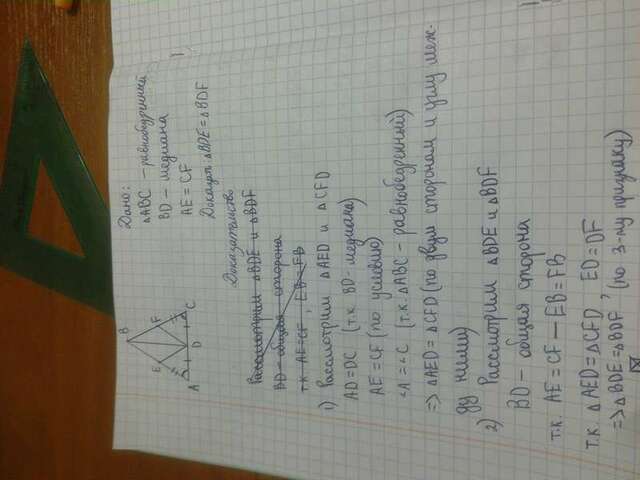 Дано:
△ABC - равнобедренный
BD - медиана
AE = CF
Доказать: △BDE = △BDF
B
E F
A D C
Доказательство
Рассмотрим △BDE и △BDF
BD - общая сторона
т.к. AE = CF, EB = FB
1) Рассмотрим △AED и △CFD
AD = DC (т.к. BD - медиана)
AE = CF (по условию)
∠A = ∠C (т.к. △ABC - равнобедренный)
=> △AED = △CFD (по двум сторонам и углу меж-
ду ними)
2) Рассмотрим △BDE и △BDF
BD - общая сторона
т.к. AE = CF – EB = FB
т.к. △AED = △CFD, ED = DF
=> △BDE = △BDF (по 3-му признаку)